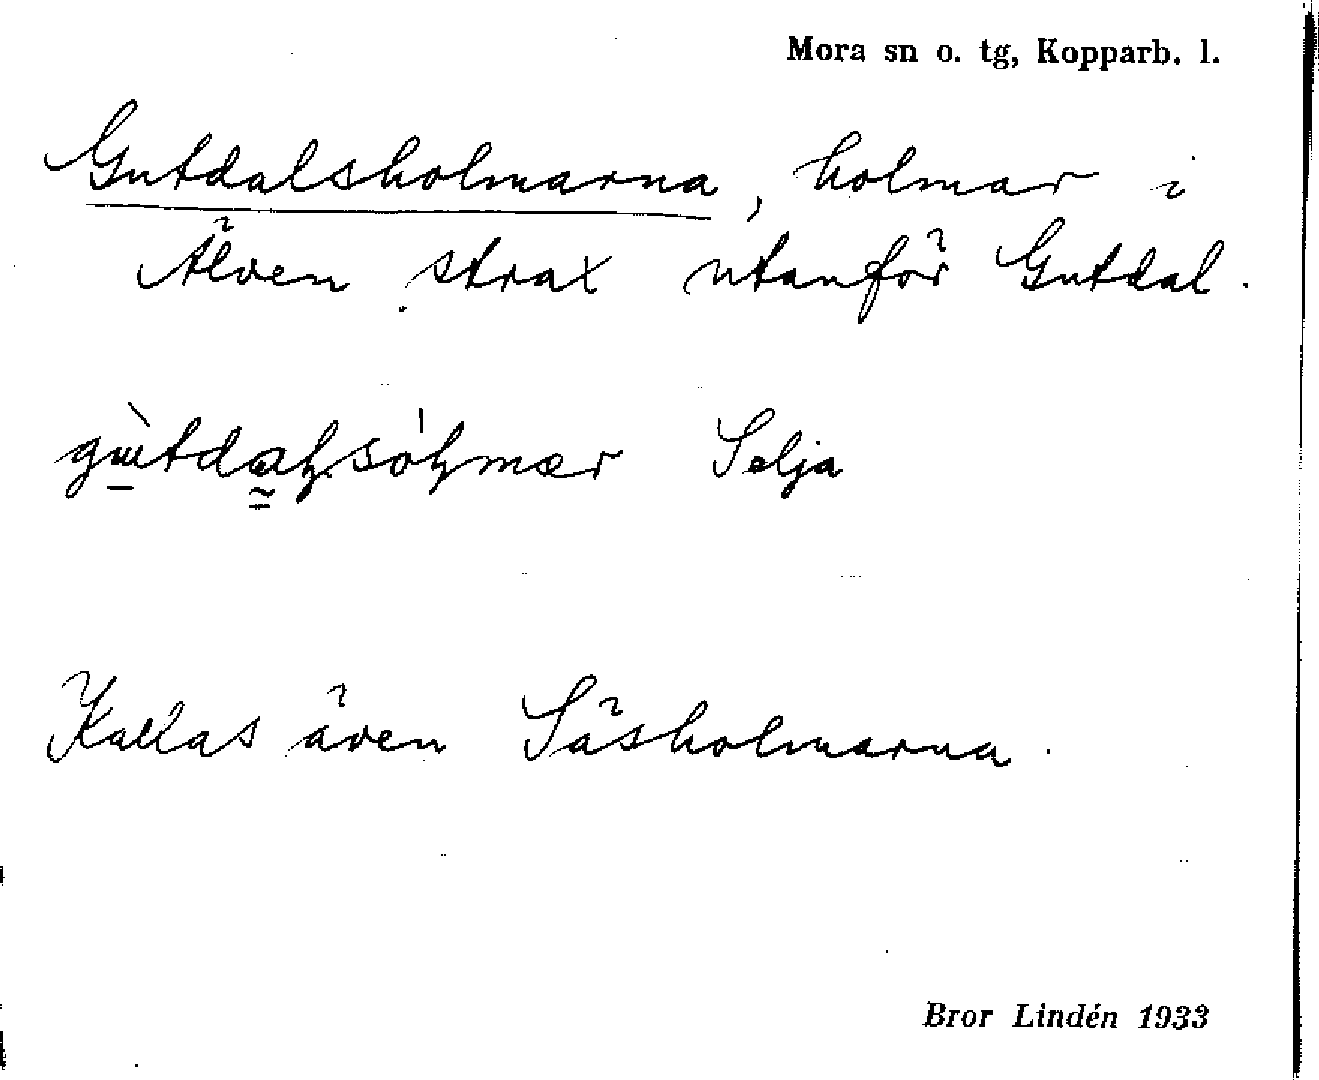 Mora sn o. tg, Kopparb. l.
Gutdalsholmarna, holmar i
Älven strax utanför Gutdal.
Selja
Kallas även Såsholmarna.
Bror Lindén 1933